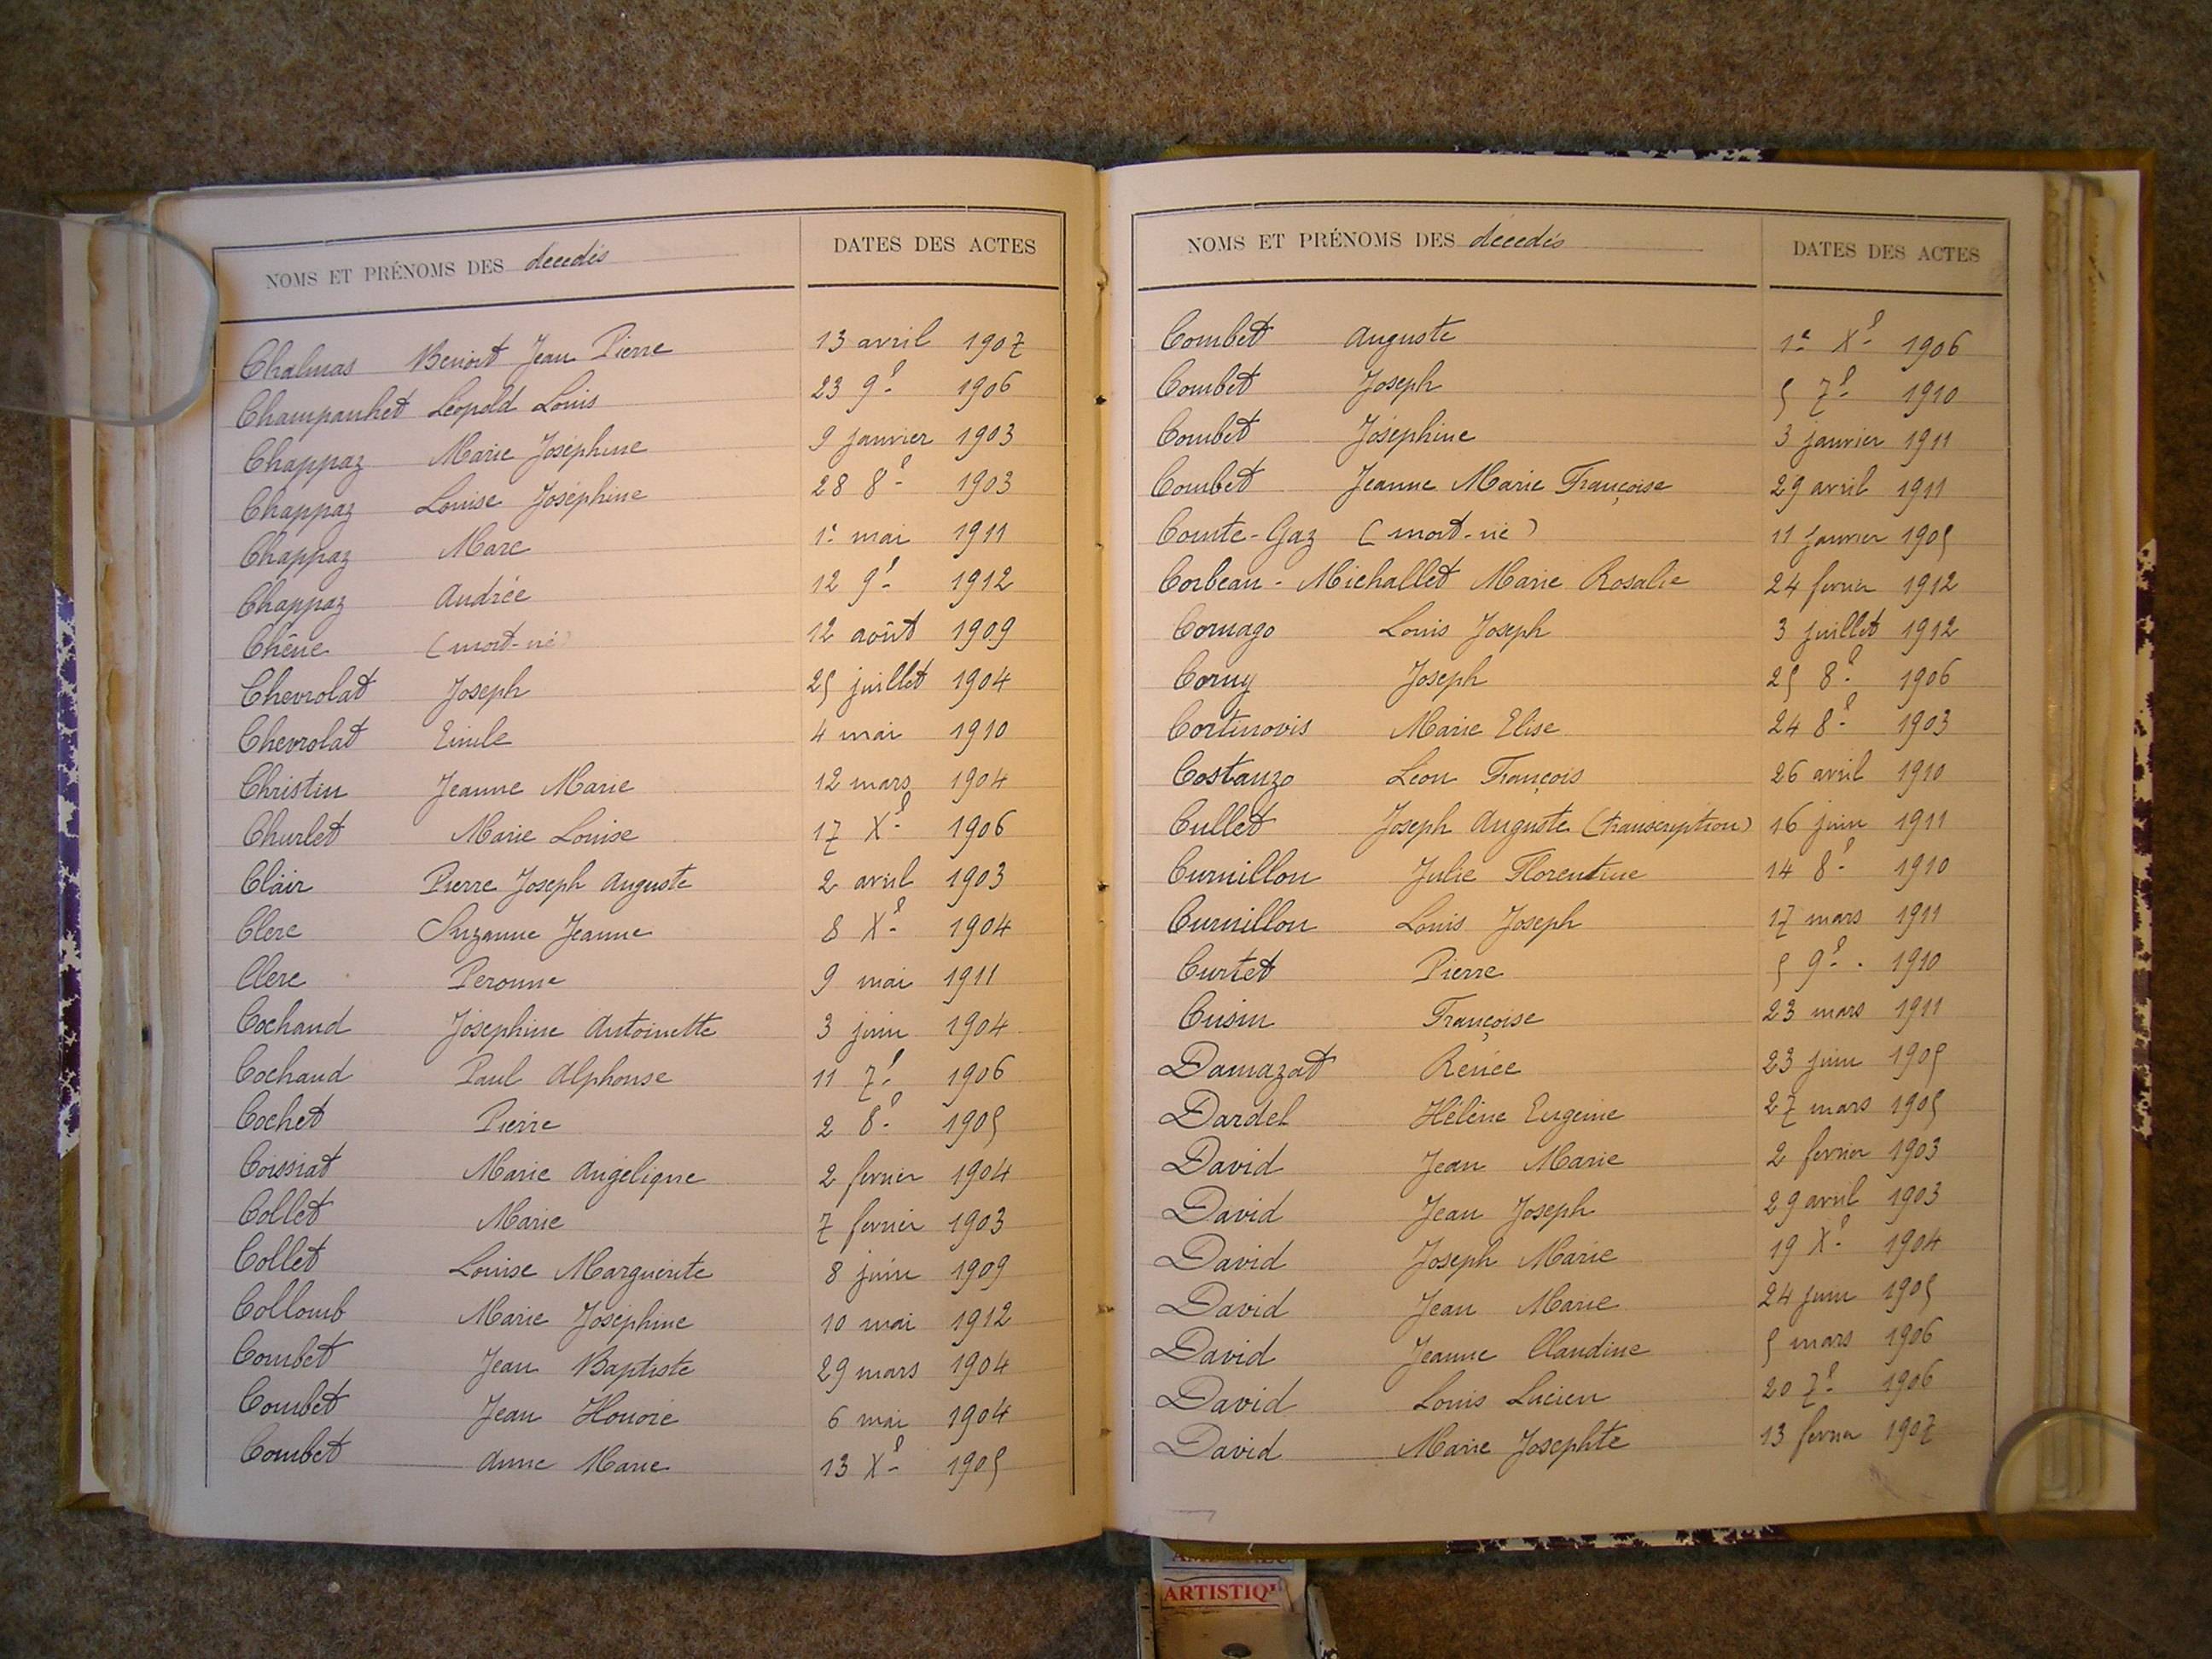 NOMS ET PRÉNOMS DES décedés DATES DES ACTES
Chalmas Benoit Jean Pierre 13 avril 1907
Champanhet Léopold Louis 23 9e 1906
Chappaz Marie Joséphine 9 janvier 1903
Chappaz Louise Joséphine 28 8e 1903
Chappaz Marc 1er mai 1911
Chappaz Andrée 12 9e 1912
Chêne (mort-né) 12 août 1909
Chevrolat Joseph 25 juillet 1904
Chevrolat Emile 4 mai 1910
Christin Jeanne Marie 12 mars 1904
Churlet Marie Louise 17 Xe 1906
Clair Pierre Joseph Auguste 2 avril 1903
Clerc Suzanne Jeanne 8 Xe 1904
Clerc Peronne 9 mai 1911
Cochaud Joséphine Antoinette 3 juin 1904
Cochaud Paul Alphonse 11 7e 1906
Cochet Pierre 2 8e 1905
Coissiat Marie Angélique 2 fevrier 1904
Collet Marie 7 fevrier 1903
Collet Louise Marguerite 8 juin 1909
Collomb Marie Joséphine 10 mai 1912
Combet Jean Baptiste 29 mars 1904
Combet Jean Honoré 6 mai 1904
Combet Anne Marie 13 Xe 1905
NOMS ET PRÉNOMS DES décedés DATES DES ACTES
Combet Auguste 1er Xe 1906
Combet Joseph 5 7e 1910
Combet Joséphine 3 janvier 1911
Combet Jeanne Marie Françoise 29 avril 1911
Comte-Gaz (mort-né) 11 janvier 1905
Corbeau-Michallet Marie Rosalie 24 fevrier 1912
Cornago Louis Joseph 3 juillet 1912
Corny Joseph 25 8e 1906
Cortinovis Marie Elise 24 8e 1903
Costanzo Léon François 26 avril 1910
Cullet Joseph Auguste (transcription) 16 juin 1911
Curnillon Julie Florentine 14 8e 1910
Curnillon Louis Joseph 17 mars 1911
Curtet Pierre 5 9e 1910
Cusin Françoise 23 mars 1911
Damazat Renée 23 juin 1905
Dardel Hélène Eugénie 27 mars 1905
David Jean Marie 2 fevrier 1903
David Jean Joseph 29 avril 1903
David Joseph Marie 19 Xe 1904
David Jean Marie 24 juin 1905
David Jeanne Claudine 5 mars 1906
David Louis Lucien 20 7e 1906
David Marie Josephte 13 fevrier 1907
ARTISTIQ